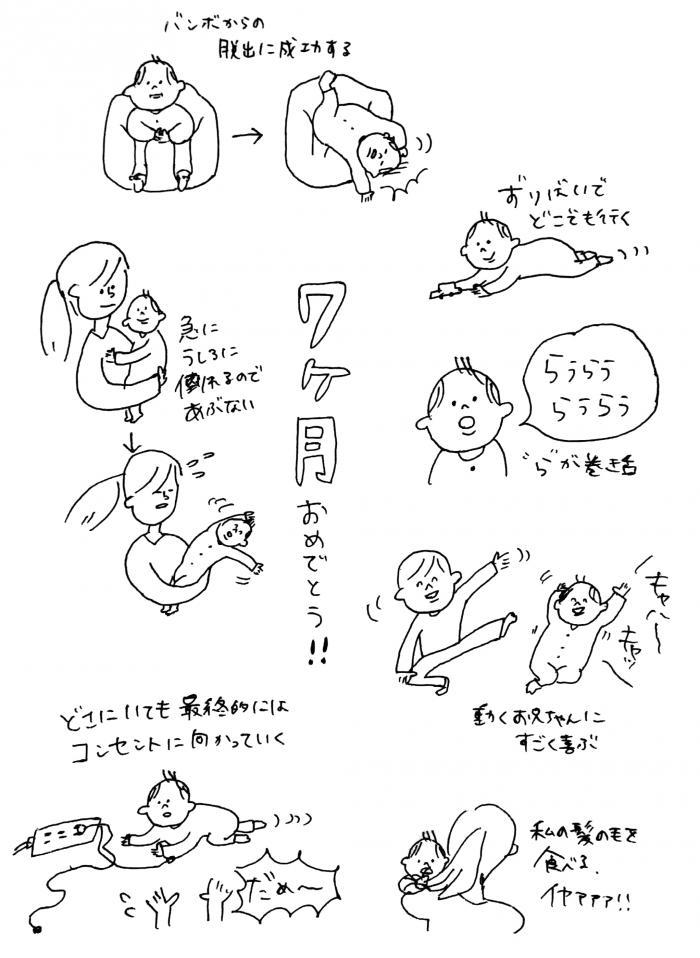 バンボからの
脱出に成功する
ずりばいで
どこでも行く
急に
うしろに
倒れるので
あぶない
7ヶ月
おめでとう!!
らぅらぅ
らぅらぅ
"ら"が巻き舌
キャハ〜
キャッ
動くお兄ちゃんに
すごく喜ぶ
どこにいても最終的には
コンセントに向かっていく
だめ〜
私の髪の毛を
食べる、
イヤァァァ!!